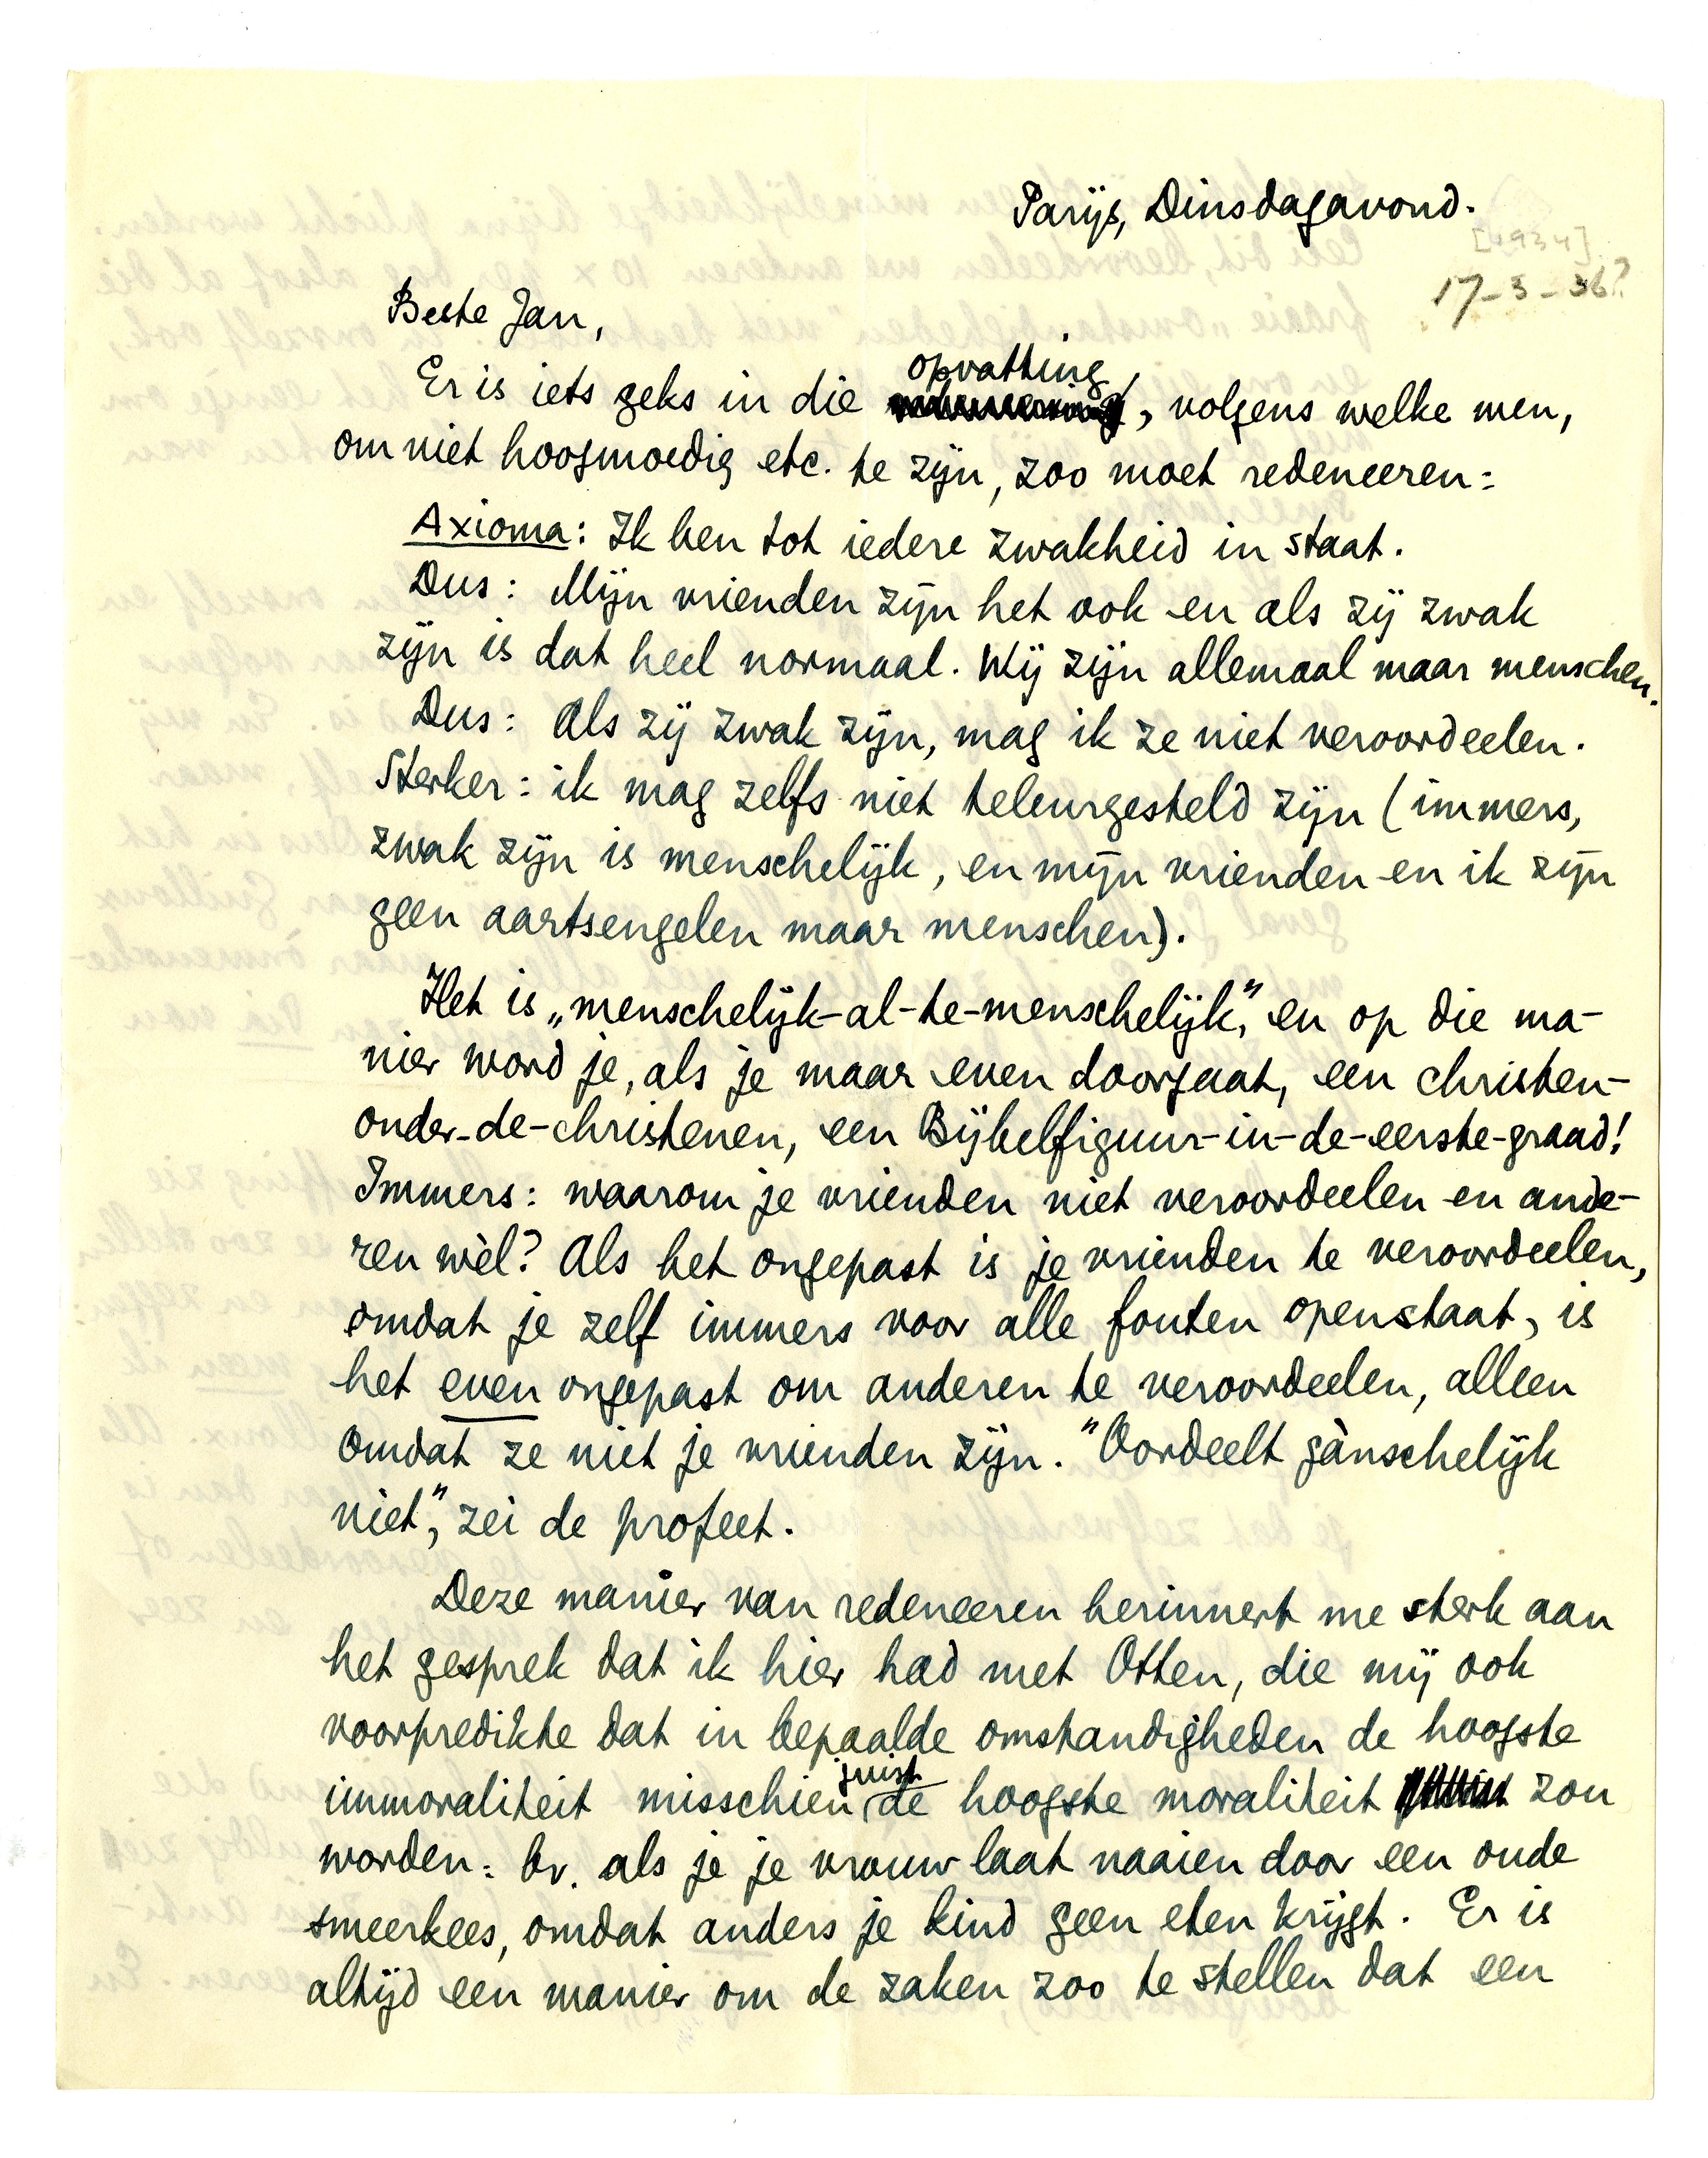 Parijs, Dinsdagavond.
[1934]
17-3-36?
Beste Jan,
opvatting
Er is iets geks in die , volgens welke men,
om niet hoogmoedig etc. te zijn, zoo moet redeneeren:
Axioma: Ik ben tot iedere zwakheid in staat.
Dus: Mijn vrienden zijn het ook en als zij zwak
zijn is dat heel normaal. Wij zijn allemaal maar menschen.
Dus: Als zij zwak zijn, mag ik ze niet veroordeelen.
Sterker: ik mag zelfs niet teleurgesteld zijn (immers,
zwak zijn is menschelijk, en mijn vrienden en ik zijn
geen aartsengelen maar menschen).
Het is „menschelijk-al-te-menschelijk”, en op die ma-
nier word je, als je maar even doorgaat, een christen-
onder-de-christenen, een Bijbelfiguur-in-de-eerste-graad!
Immers: waarom je vrienden niet veroordeelen en ande-
ren wèl? Als het ongepast is je vrienden te veroordeelen,
omdat je zelf immers voor alle fouten openstaat, is
het even ongepast om anderen te veroordeelen, alleen
omdat ze niet je vrienden zijn. "Oordeelt gànschelijk
niet", zei de profeet.
Deze manier van redeneeren herinnert me sterk aan
het gesprek dat ik hier had met Otten, die mij ook
voorpredikte dat in bepaalde omstandigheden de hoogste
immoraliteit misschien juist de hoogste moraliteit zou
worden: bv. als je je vrouw laat naaien door een oude
smeerkees, omdat anders je kind geen eten krijgt. Er is
altijd een manier om de zaken zoo te stellen dat een